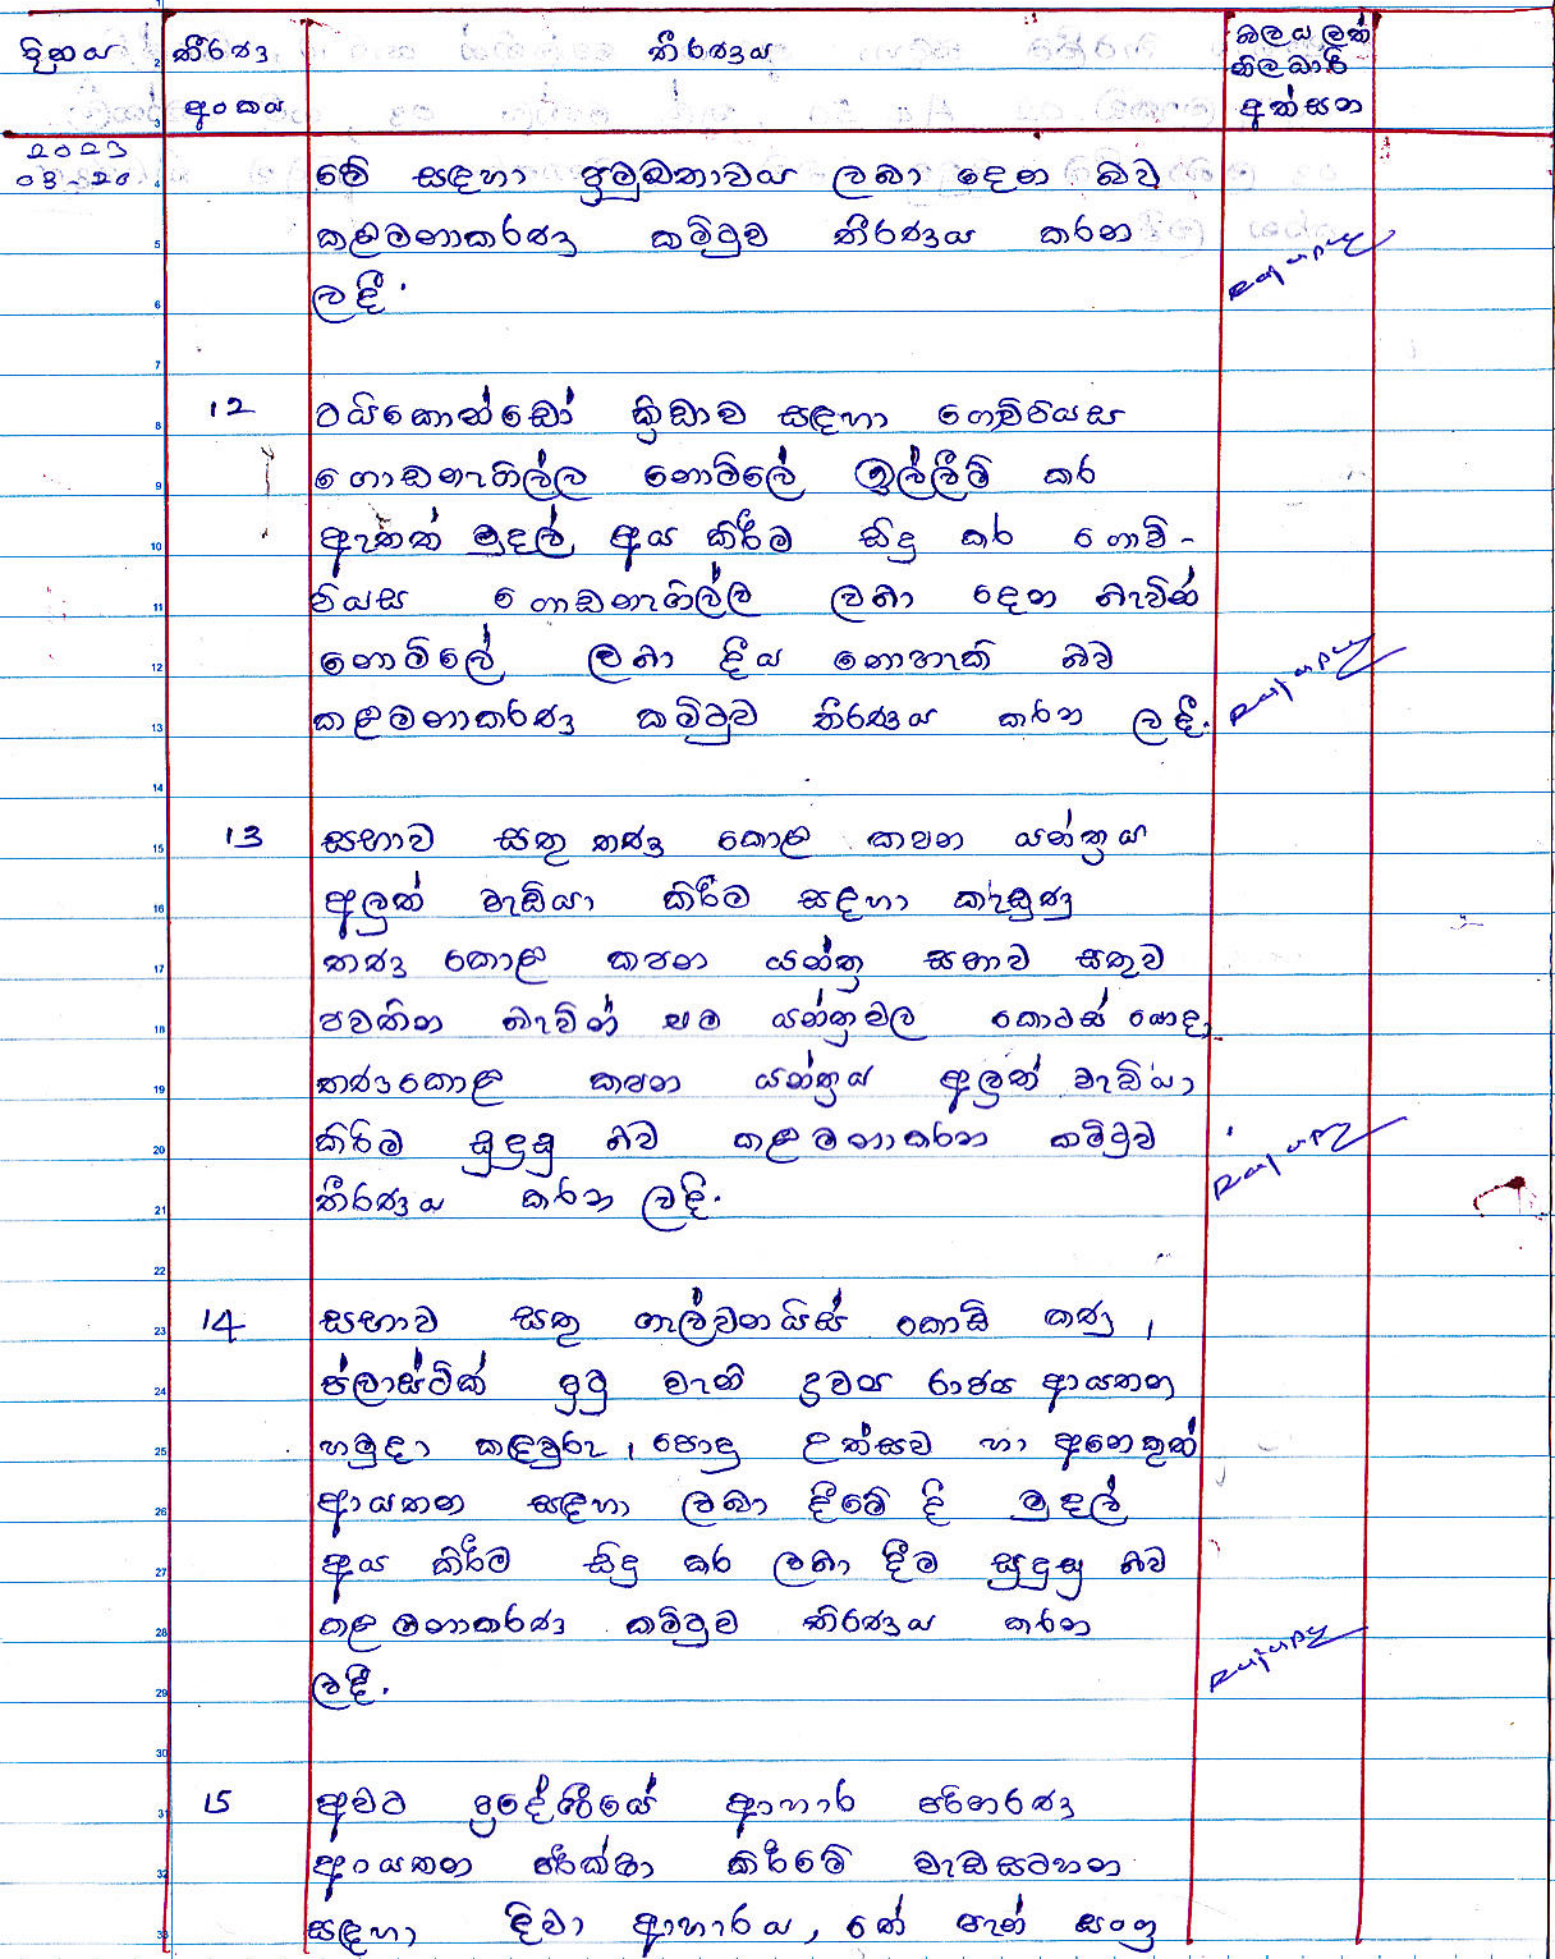 දිනය තීරණ තීරණය බලයලත්
නිලධාරී
අංකය අත්සන
2023
03-20
මේ සඳහා ප්‍රමුඛතාවය ලබා දෙන බව
කළමනාකරණ කමිටුව තීරණය කරන
ලදී.
12 ටයිකොන්ඩෝ ක්‍රීඩාව සඳහා ගොවිපියස
ගොඩනැගිල්ල නොමිලේ ඉල්ලීම් කර
ඇතත් මුදල් අය කිරීම සිදු කර ගොවි-
පියස ගොඩනැගිල්ල ලබා දෙන බැවින්
නොමිලේ ලබා දිය නොහැකි බව
කළමනාකරණ කමිටුව තීරණය කරන ලදී.
13 සභාව සතු තණ කොළ කපන යන්ත්‍රය
අලුත් වැඩියා කිරීම සඳහා කැඩුණු
තණ කොළ කපන යන්ත්‍ර සභාව සතුව
පවතින බැවින් එම යන්ත්‍රවල කොටස් යොදා
තණකොළ කපන යන්ත්‍රය අලුත් වැඩියා
කිරීම සුදුසු බව කළමනාකරන කමිටුව
තීරණය කරන ලදි.
14 සභාව සතු ගැල්වනයිස් කොඩි කණු,
ප්ලාස්ටික් පුටු වැනි ද්‍රව්‍ය රාජ්‍ය ආයතන
හමුදා කඳවුරු, පොදු උත්සව හා අනෙකුත්
ආයතන සඳහා ලබා දීමේ දී මුදල්
අය කිරීම සිදු කර ලබා දීම සුදුසු බව
කළමනාකරණ කමිටුව තිරණය කරන
ලදී.
15 අවට ප්‍රදේශයේ ආහාර පරිහරණ
ආයතන පරීක්ෂා කිරීමේ වැඩසටහන
සඳහා දිවා ආහාරය, තේ පැන් සංග්‍ර